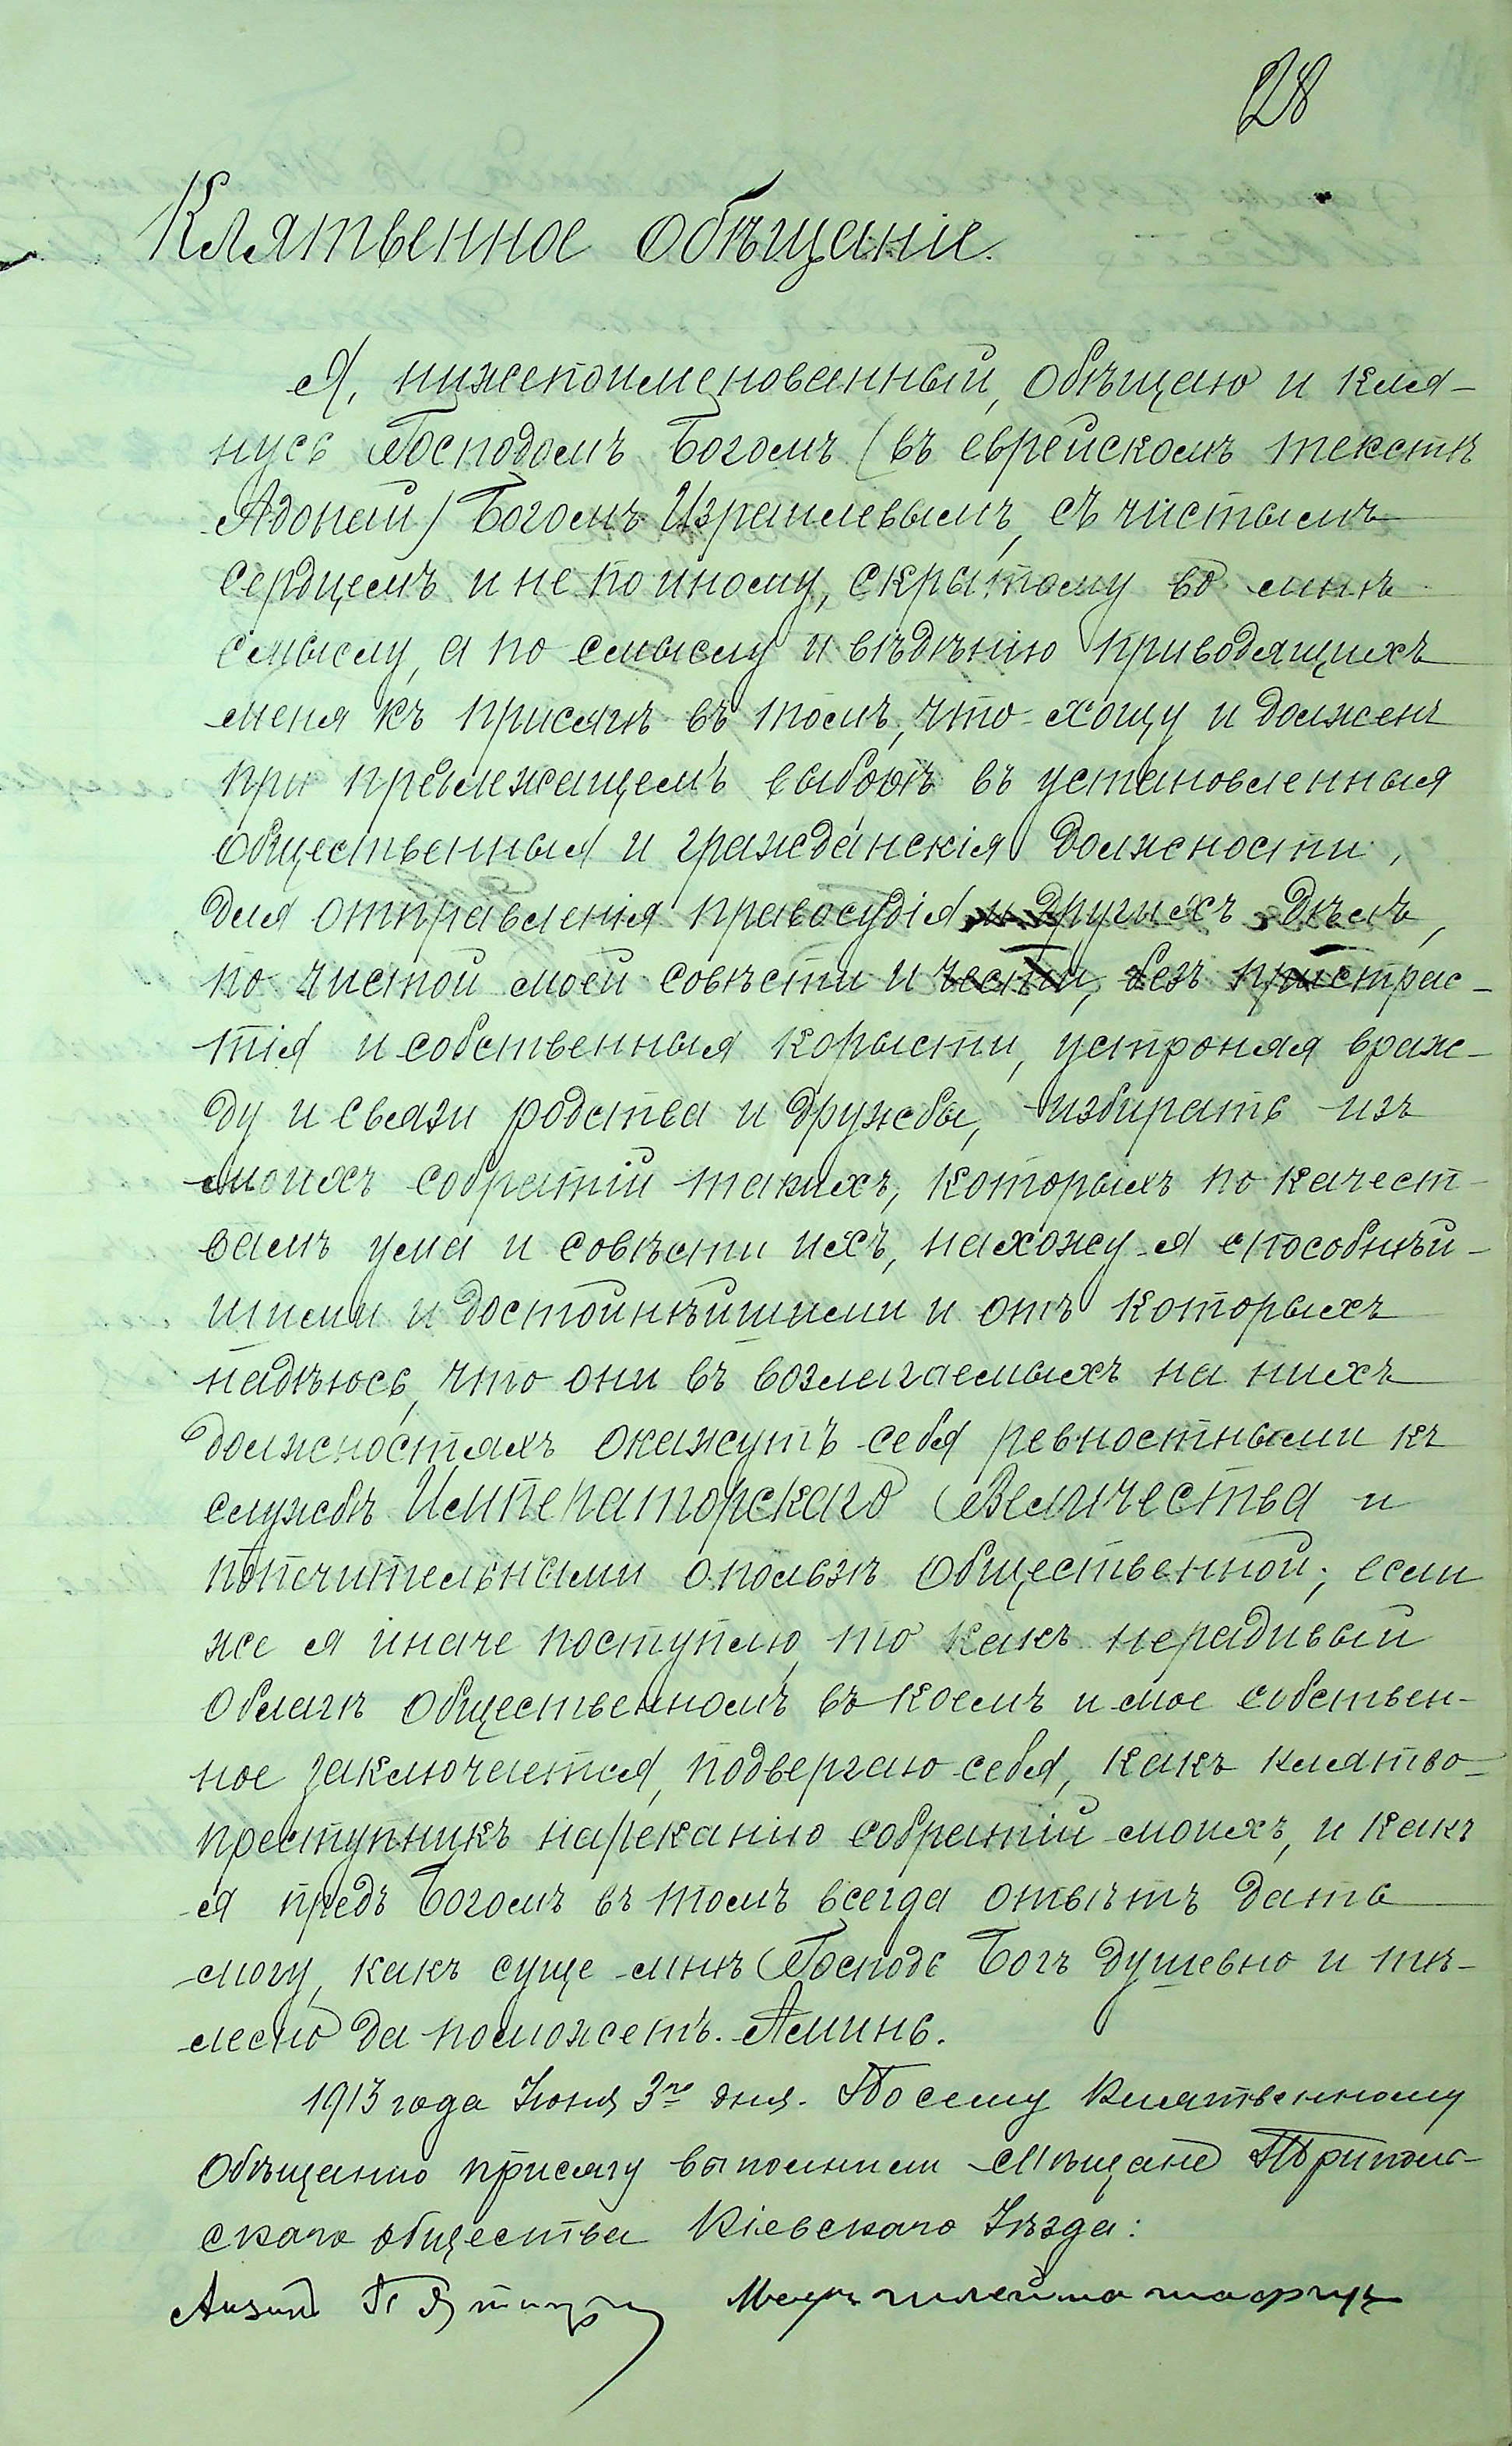 28
Клятвенное обѣщаніе.
Я, нижепоименованный, обѣщаю и кля-
нусь Господомъ Богомъ (въ еврейскомъ текстѣ
Адонай) Богомъ Израилевымъ, съ чистымъ
сердцемъ и не по иному, скрытому во мнѣ
смыслу, а по смыслу и вѣдѣнію приводящихъ
меня къ присягѣ въ томъ, что хощу и долженъ
при предлежащемъ выборѣ въ установленныя
общественныя и гражданскія должности,
для отправленія правосудія и другихъ дѣлъ,
по чистой моей совѣсти и чести, безъ пристрас-
тія и собственныя корысти, устроняя враж-
ду и связи родства и дружбы, избирать изъ
моихъ собратій такихъ, которыхъ по качест-
вамъ ума и совѣсти ихъ, нахожу я способнѣй-
шими и достойнѣйшими и отъ которыхъ
надѣюсь, что они въ возлагаемыхъ на нихъ
должностяхъ окажутъ себя ревностными къ
службѣ Императорскаго Величества и
попечительными о пользѣ общественной; если
же я иначе поступлю, то какъ нерадивый
о благѣ общественномъ въ коемъ и мое собствен-
ное заключается, подвергаю себя, какъ клятво-
преступникъ нареканію собратій моихъ, и какъ
я предъ Богомъ въ томъ всегда отвѣтъ дать
могу, какъ суще мнѣ Господь Богъ душевно и тѣ-
лесно да поможетъ. Аминь.
1913 года Іюня 3го дня. По сему клятвенному
обѣщанію присягу выполнили Мѣщане Триполь-
скаго общества Кіевскаго Уѣзда: